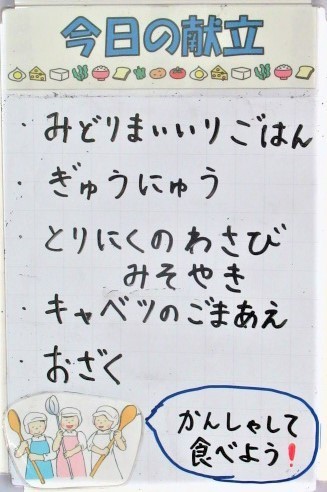 今日の献立
・みどりまいいりごはん
・ぎゅうにゅう
・とりにくのわさび
みそやき
・キャベツのごまあえ
・おざく
かんしゃして
食べよう!